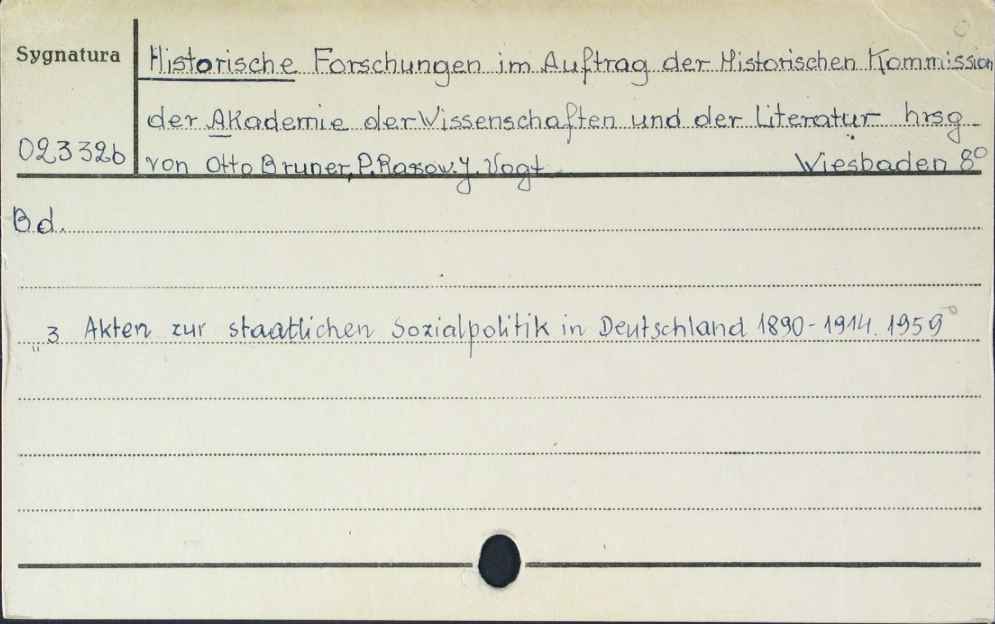 Sygnatura
Historische Forschungen im Auftrag der Historischen Kommission
der Akademie der Wissenschaften und der Literatur hrsg
023326
von Otto Bruner, P. Rasow. J. Vogt Wiesbaden 8°
Bd.
" 3 Akten zur staatlichen Sozialpolitik in Deutschland 1890-1914. 1959